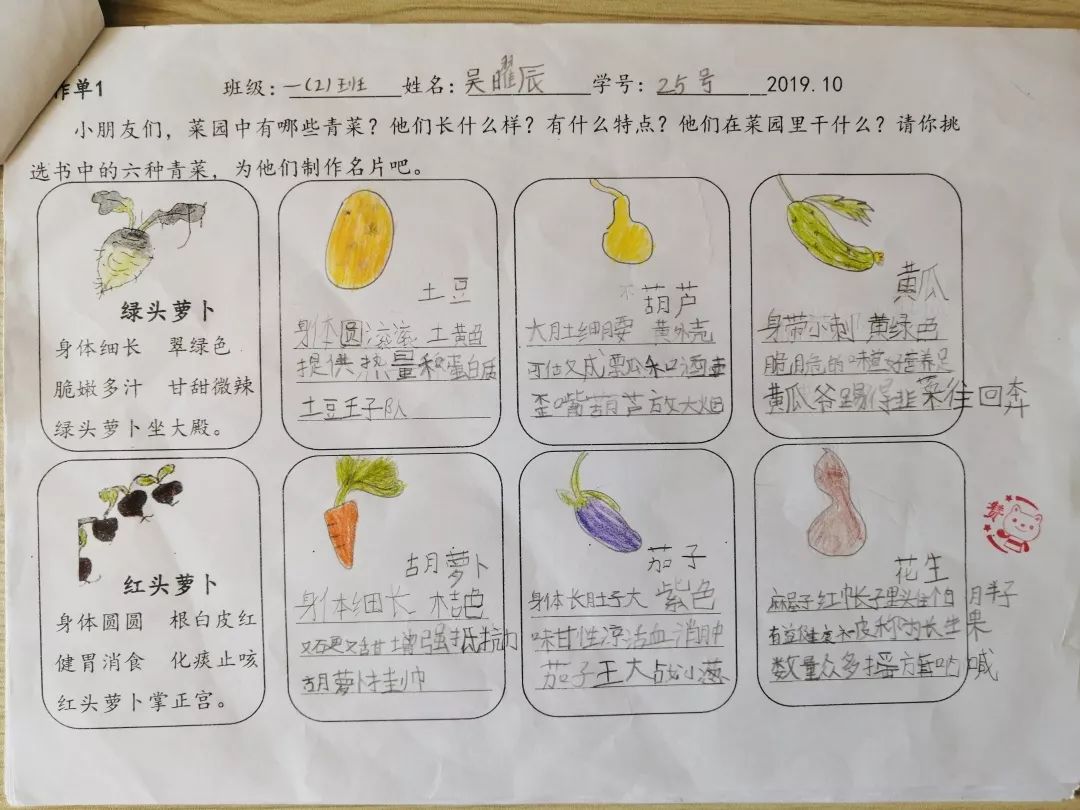 作单1 班级：一(2)班 姓名：吴曜辰 学号：25号 2019.10
小朋友们，菜园中有哪些青菜？他们长什么样？有什么特点？他们在菜园里干什么？请你挑
选书中的六种青菜，为他们制作名片吧。
绿头萝卜
身体细长 翠绿色
脆嫩多汁 甘甜微辣
绿头萝卜坐大殿。
土豆
身体圆滚滚 土黄色
提供热量和蛋白质
土豆王子队
葫芦
大肚细腰 黄外壳
歪嘴葫芦放大烟
黄瓜
身带小刺 黄绿色
黄瓜爷踢得韭菜往回奔
红头萝卜
身体圆圆 根白皮红
健胃消食 化痰止咳
红头萝卜掌正宫。
胡萝卜
身体细长 桔色
又甘 增强抵抗力
胡萝卜挂帅
茄子
身体长肚子大 紫色
味甘性凉活血消肿
茄子王大战小葱
花生
麻屋子红巾长子里头住个白胖子
数量众多摇方呐喊
赞